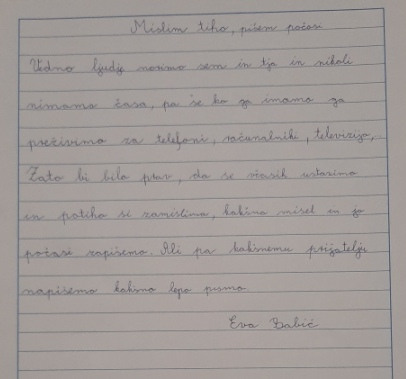 Mislim tiho, pišem počasi
Vedno ljudje norimo sem in tja in nikoli
nimamo časa, pa še ko ga imamo ga
preživimo za telefoni, računalniki, televizijo,
Zato bi bilo prav, da se včasih ustavimo
in potiho si zamislimo, kakšno misel in jo
počasi zapišemo. Ali pa kakšnemu prijatelju
napišemo kakšno lepo pismo.
Eva Babič